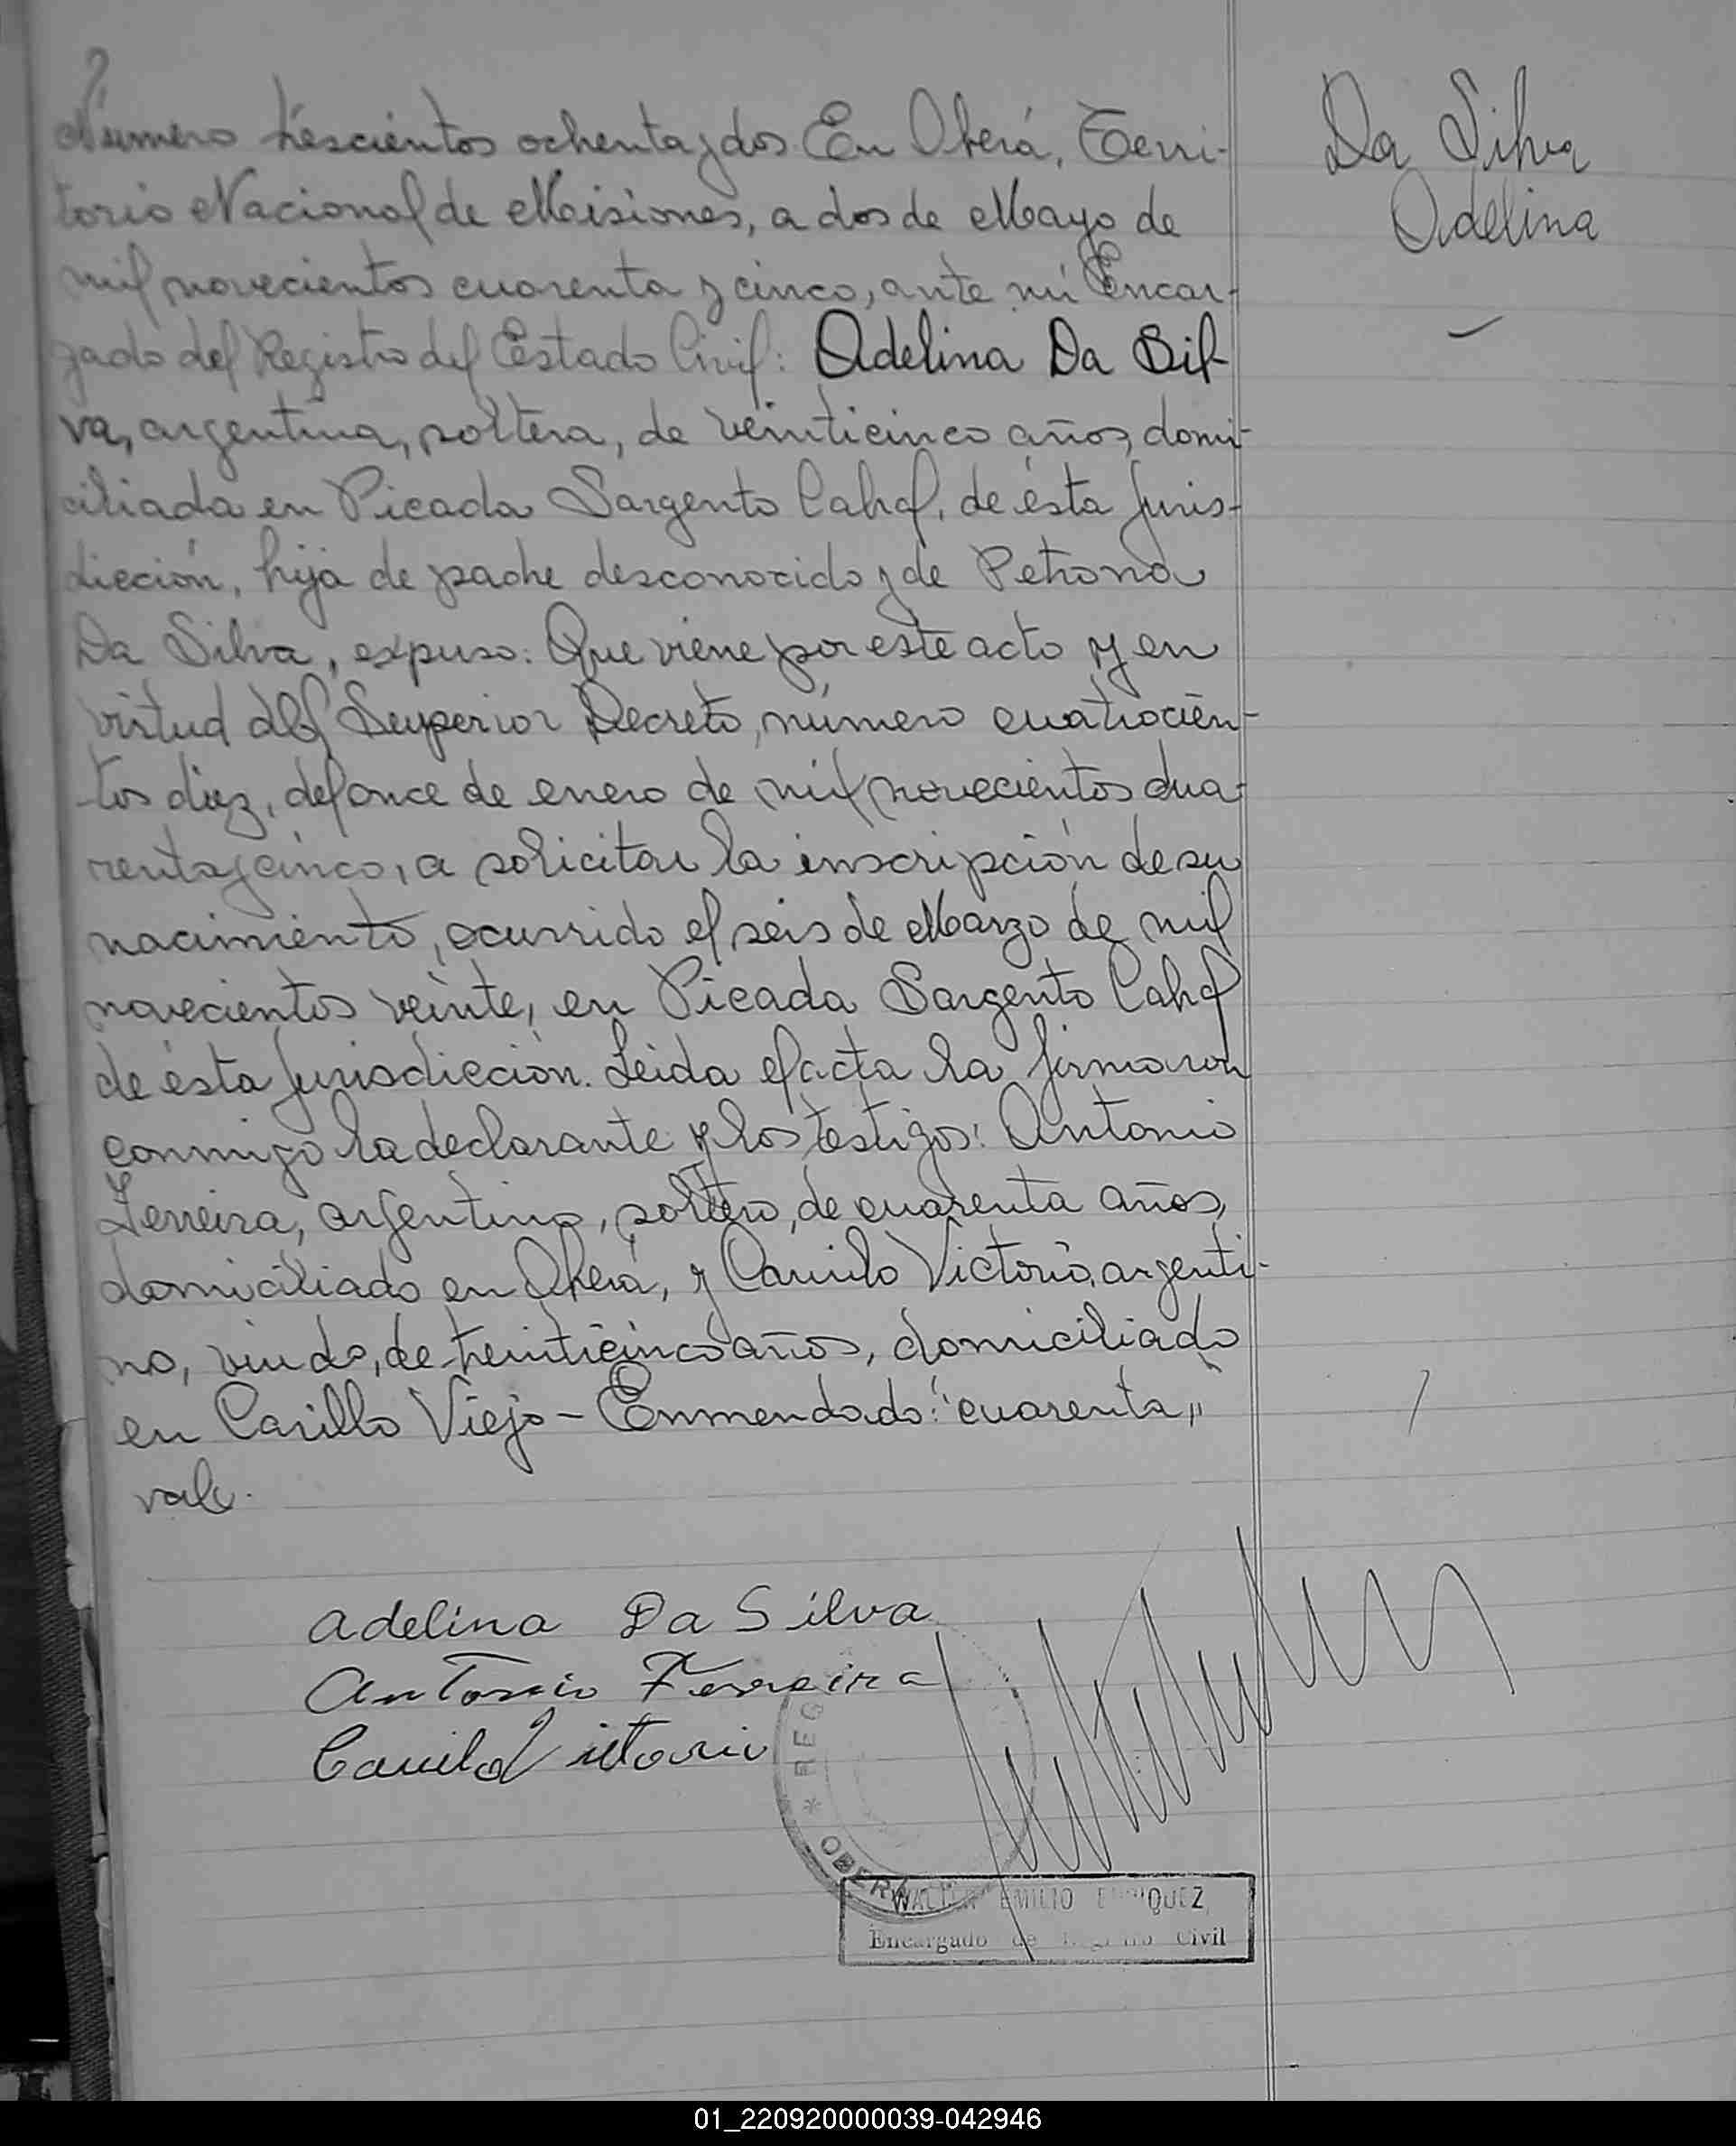 Número trescientos ochenta y dos. En Oberá, Terri-
torio Nacional de Misiones, a dos de Mayo de
mil novecientos cuarenta y cinco, ante mí Encar-
gado del Registro del Estado Civil: Adelina Da Sil-
va, argentina, soltera, de veinticinco años, domi-
ciliada en Picada Sargento Cabral, de ésta juris-
dicción, hija de padre desconocido y de Petrona
Da Silva, expuso: Que viene por este acto y en
virtud del Superior Decreto, número cuatrocien-
tos diez, del once de enero de mil novecientos cua-
renta y cinco, a solicitar la inscripción de su
nacimiento, ocurrido el seis de Marzo de mil
novecientos veinte, en Picada Sargento Cabral
de ésta jurisdicción. Leida el acta la firmaron
conmigo la declarante y los testigos: Antonio
Ferreira, argentino, soltero, de cuarenta años,
domiciliado en Oberá, y Camilo Victorio, argenti-
no, viudo, de treinticinco años, domiciliado
en Carillo Viejo - Enmendado: "cuarenta"
vale.
Da Silva
Adelina
Adelina Da Silva
Antonio Ferreira
Camilo Vittorio
* REG
OBERÁ
WALTER EMILIO ENRIQUEZ
Encargado de Registro Civil
01_220920000039-042946